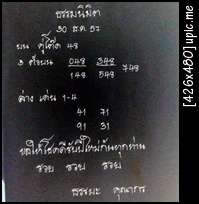 ธรรมนิมิต
30 ส.ค. 57
บน คู่โต๊ด 48
3 ตัวบน 048 348 748
148 548
ล่าง เด่น 1-4
41 71
91 31
ขอให้โชคดีรับปีใหม่กันทุกท่าน
รวย รวย รวย
ธรรมะ คุณากร
[426x480] upic.me